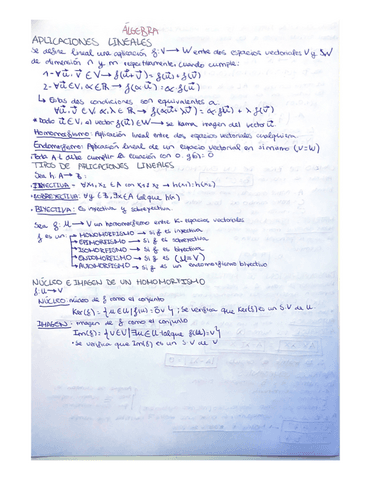 ÁLGEBRA
APLICACIONES LINEALES
Se define lineal una aplicación f: V → W entre dos espacios vectoriales V y W
de dimensión n y m respectivamente, cuando cumple:
1- ∀ū, v̄ ∈ V → f(ū+v̄) = f(ū) + f(v̄)
2- ∀ū ∈ V, α ∈ ℝ → f(αū) = α·f(ū)
↳ Estas dos condiciones son equivalentes a:
∀ū, v̄ ∈ V, α, λ ∈ ℝ → f(αū+λv̄) = α·f(ū) + λ f(v̄)
* Dado ū ∈ V, el vector f(ū) ∈ W → se llama imagen del vector ū.
Homomorfismo: Aplicación lineal entre dos espacios vectoriales cualquiera.
Endomorfismo: Aplicación lineal de un espacio vectorial en sí mismo (V=W)
Toda A.L debe cumplir la ecuación con 0: f(0)=0
TIPO DE APLICACIONES LINEALES
Sea h: A → B:
· INYECTIVA = ∀x₁, x₂ ∈ A con x₁ ≠ x₂ → h(x₁) ≠ h(x₂)
· SOBREYECTIVA: ∀y ∈ B, ∃x ∈ A tal que
· BIYECTIVA: Es inyectiva y sobreyectiva
Sea f: U → V un homomorfismo entre K-espacios vectoriales
f es un → MONOMORFISMO → si f es inyectiva
EPIMORFISMO → si f es sobreyectiva
ISOMORFISMO → si f es biyectiva
ENDOMORFISMO → si f es (U=V)
AUTOMORFISMO → si f es un endomorfismo biyectivo
NÚCLEO E IMAGEN DE UN HOMOMORFISMO
f: U → V
NÚCLEO: núcleo de f como el conjunto
Ker(f) = {u ∈ U | f(u) = 0v}; se verifica que Ker(f) es un S.V de U
IMAGEN: imagen de f como el conjunto
Im(f) = {v ∈ V | ∃u ∈ U talque f(u) = v}
· Se verifica que Im(f) es un S.V de V